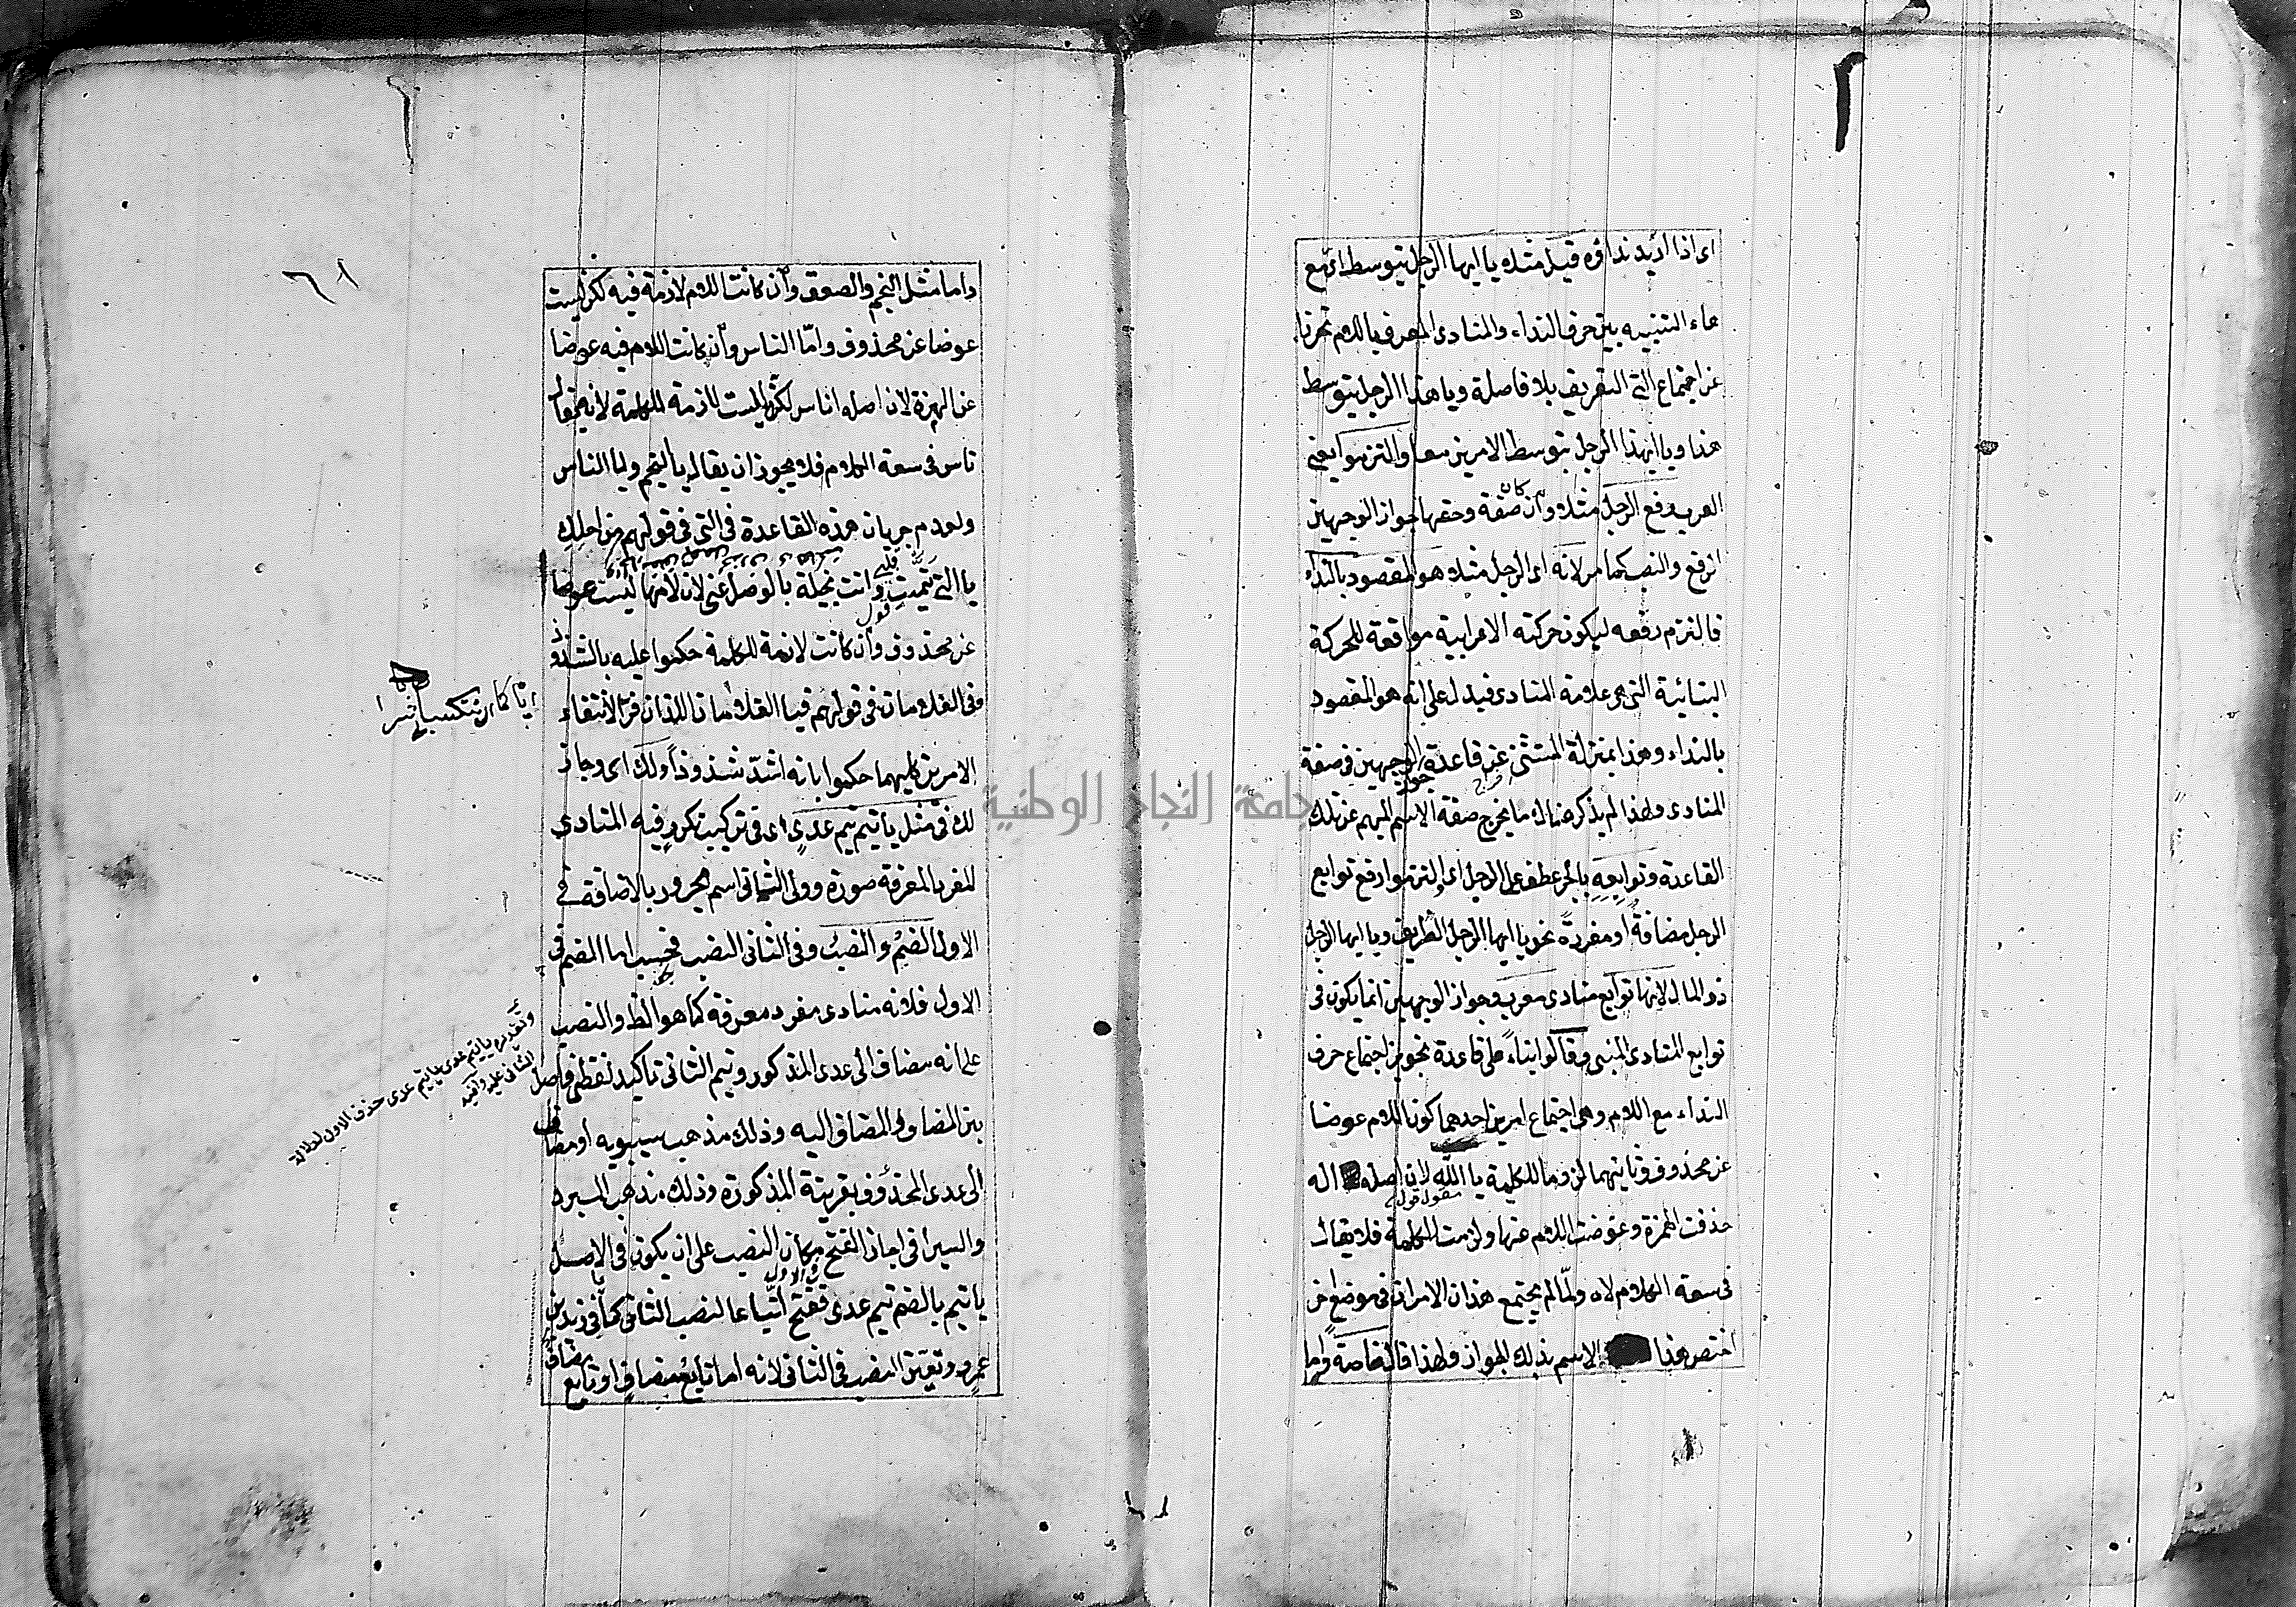 اى اذا اريد نداؤه قيل مثلا يا ايها الرجل بتوسط اى مع
هاء التنبيه بين حرف النداء والمنادى المعرف باللام تحرزا
عن اجتماع آلتى التعريف بلا فاصلة ويا هذا الرجل بتوسط
هذا ويا ايهذا الرجل بتوسط الامرين معا والتزموا يعنى
العرب رفع الرجل مثلا وان كان صفة وحقها جواز الوجهين
الرفع والنصب كما مر لانه اى الرجل مثلا هو المقصود بالنداء
فالتزم رفعه ليكون حركته الاعرابية موافقة للحركة
البنائية التى هى علامة المنادى فيدل على انه هو المقصود
بالنداء وهذا بمنزلة المستثنى عن قاعدة جواز الوجهين فى صفة
المنادى ولهذا لم يذكر هناك ما يخرج صفة الاسم المبهم عن تلك
القاعدة وتوابعه بالجر عطف على الرجل اى والتزموا رفع توابع
الرجل مضافة او مفردة نحو يا ايها الرجل الظريف ويا ايها الرجل
ذو المال لانها توابع منادى معرب وجواز الوجهين انما يكون فى
توابع المنادى المبنى وقالوا بناء على قاعدة تجويز اجتماع حرف
النداء مع اللام وهى اجتماع امرين احدهما كون اللام عوضا
عن محذوف وثانيهما لزومها للكلمة يا الله لان اصله اله
مقول قول
حذفت الهمزة وعوضت اللام عنها ولزمت الكلمة فلا يقال
فى سعة الكلام لاه ولما لم يجتمع هذان الامران فى موضع اخر
اختص هذا الاسم بذلك الجواز ولهذا قال خاصة واما
٦١
واما مثل النجم والصعق وان كانت اللام لازمة فيه لكن ليست
عوضا عن محذوف واما الناس وان كانت اللام فيه عوضا
عن الهمزة لان اصله اناس لكن ليست لازمة للكلمة لانه يقال
ناس فى سعة الكلام فلا يجوز ان يقال يا النجم ويا الناس
ولعدم جريان هذه القاعدة فى التى فى قولهم من اجلك
يا التى تيمت قلبى وانت بخيلة بالوصل عنى لان لامها ليست عوضا
عن محذوف وان كانت لازمة للكلمة حكموا عليه بالشذوذ
وفى الغلامان فى قولهم فيا الغلامان اللذان فرا لانتفاء
الامرين كليهما حكموا بانه اشد شذوذا ولك اى وجاز
لك فى مثل يا تيم تيم عدى اى فى تركيب تكرر فيه المنادى
المفرد المعرفة صورة وولى الثانى اسم مجرور بالاضافة فى
الاول الضم والنصب وفى الثانى النصب فحسب اما الضم فى
الاول فلانه منادى مفرد معرفة كما هو الظ والنصب
على انه مضاف الى عدى المذكور وتيم الثانى تاكيد لفظى فاصل
بين المضاف والمضاف اليه وذلك مذهب سيبويه او مضاف
الى عدى المحذوف بقرينة المذكورة وذلك مذهب المبرد
والسيرافى اجاز الفتح مكان النصب على ان يكون فى الاصل
يا تيم بالضم تيم عدى ففتح اتباعا لنصب الثانى كما فى يا زيد بن
عمرو وتعين النصب فى الثانى لانه اما تابع مضاف او تابع مضاف
وتقديره يا تيم عدى يا تيم عدى حذف الاول لدلالة
الثانى عليه
جامعة النجاح الوطنية